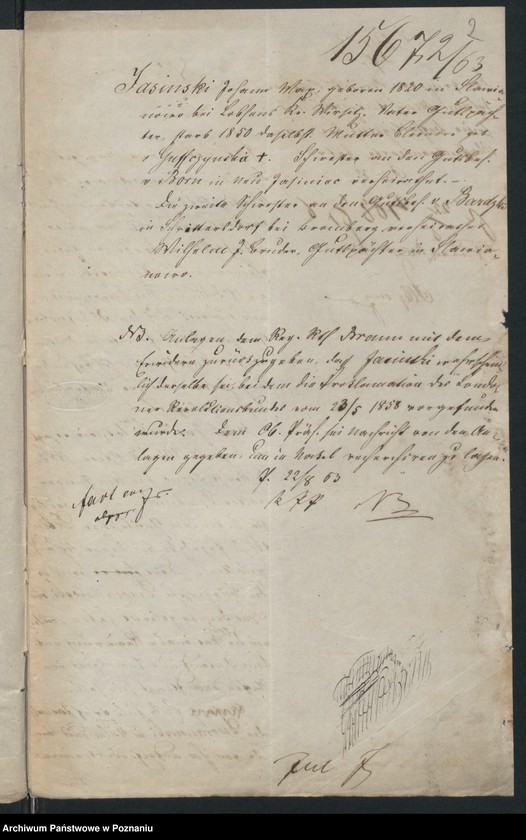 15672 2/63
Jasinski Johann Max, geboren 1820 in Slawia-
nowo bei Lobsens Kr. Wirsitz. Vater Gutspäch-
ter, starb 1850 daselbst. Mutter
v Guffczynska †. Schwester an den Gutsbes.
v Born in Neu Jasiniec verheirathet. —
Die zweite Schwester an den Gutsbes. v. Bardzki
in Schrittersdorf bei Bromberg verheirathet
Wilhelm J. Bruder, Gutspächter in Slawia-
nowo.
NB. Anlagen dem Reg. Rth Braun mit dem
Erwidern zurückzugeben, daß Jasinski wahrschein-
lich derselbe sei, bei dem die Proclamation des Londo-
ner Revolutionsbundes vom 23/5 1858 vorgefunden
wurde. Dem Ob. Präs. sei Nachricht von den An-
lagen gegeben, um in Nakel recherchiren zu lassen.
P. 22/8 63
K P P
NB
Archiwum Państwowe w Poznaniu